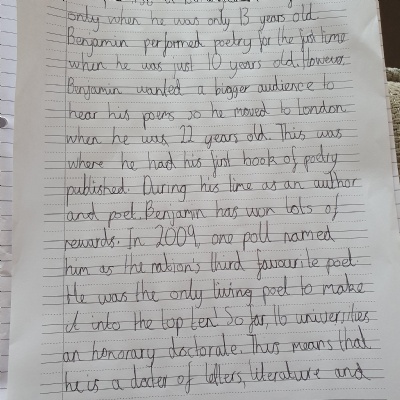 only when he was only 13 years old.
Benjamin performed poetry for the first time
when he was just 10 years old. However,
Benjamin wanted a bigger audience to
hear his poems so he moved to london
when he was 22 years old. This was
where he had his first book of poetry
published. During his time as an author
and poet, Benjamin has won lots of
rewards. In 2009, one poll named
him as the nation's third favourite poet.
He was the only living poet to make
it into the top ten! So far, 16 universities
an honorary doctorate. Thus means that
he is a docter of letters, literature and